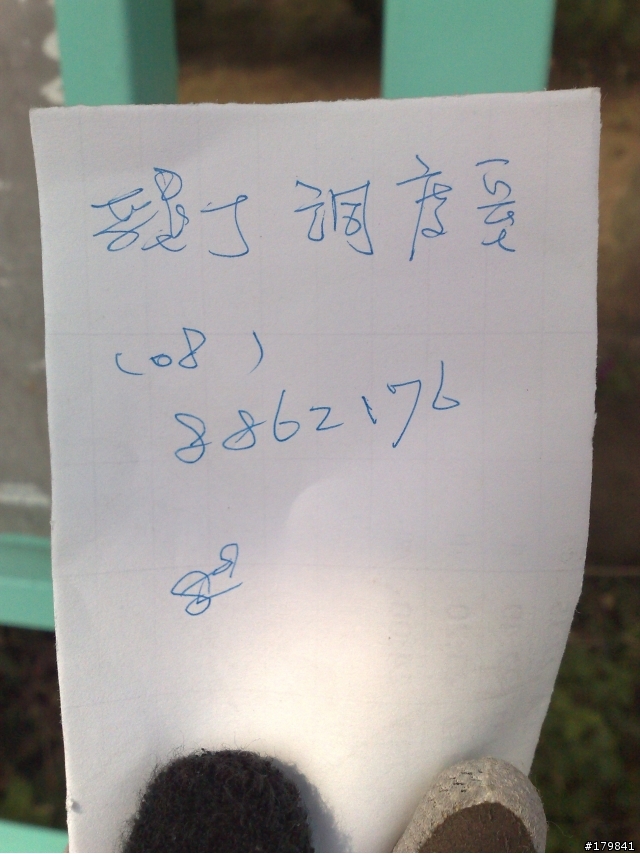 墾丁 調度
(08)
8862176
#179841